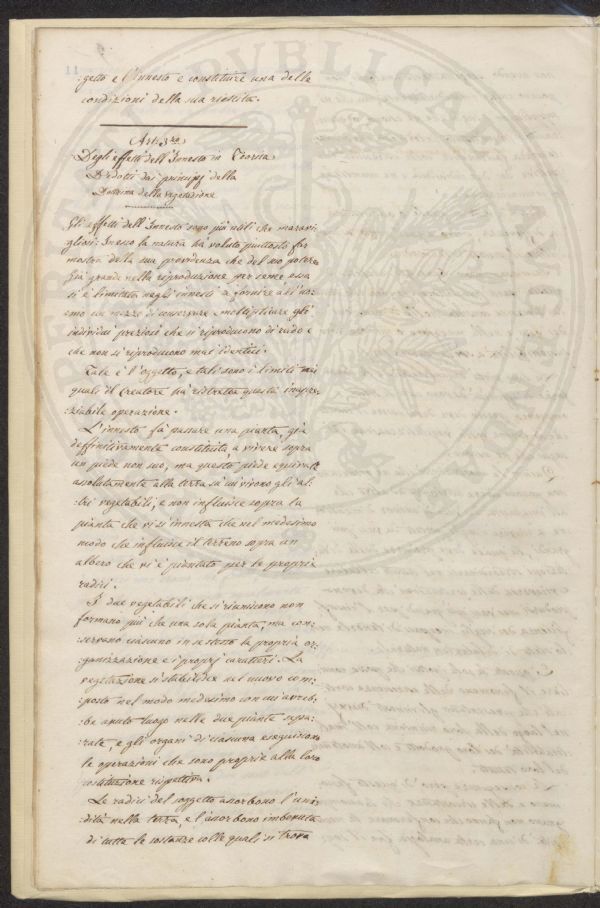 11
:getto e l'Innesto e constituire una delle
condizioni della sua riescita.
Art. 3ro
Degli effetti dell'Innesto in Teoria
Dedotti dai principj della
Dottrina della vegetazione
Gli effetti dell'Innesto sono più utili che maravi
gliosi: In esso la natura há voluto piuttosto far
mostra della sua providenza che del suo potere.
Già grande nella riproduzione per seme essa
si è limitata negli innesti a fornire all'uo:
mo un mezzo di conservare e moltiplicare gli
individui preziosi che si riproducono di rado e
che non si riproducono mai identici.
Tale è l'oggetto, e tali sono i limiti nei
quali il Creatore há ristretta questa inapre:
:ziabile operazione.
L'innesto fá passare una pianta già
deffinitivamente constituita a vivere sopra
un piede non suo, ma questo piede equivale
assolutamente alla terra sú cui vivono gli al:
:tri vegetabili, e non influisce sopra la
pianta che vi si innesta che nel medesimo
modo che influisce il terreno sopra un
albero che vi è piantato per le proprie
radici.
I due vegetabili che si riuniscono non
formano più che una sola pianta, ma con:
:servano ciascuno in se stesso la propria or:
:ganizzazione e i proprj caratteri. La
vegetazione si stabilisce nel nuovo com:
:posto nel modo medesimo con cui avreb:
:be avuto luogo nelle due piante sepa:
:rate, e gli organi di ciascuna eseguiscono
le operazioni che sono proprie alla loro
costituzione rispettiva.
Le radici del soggetto assorbono l'umi:
:dità nella terra, e l'assorbono imbevuta
di tutte le sostanze colle quali si trova